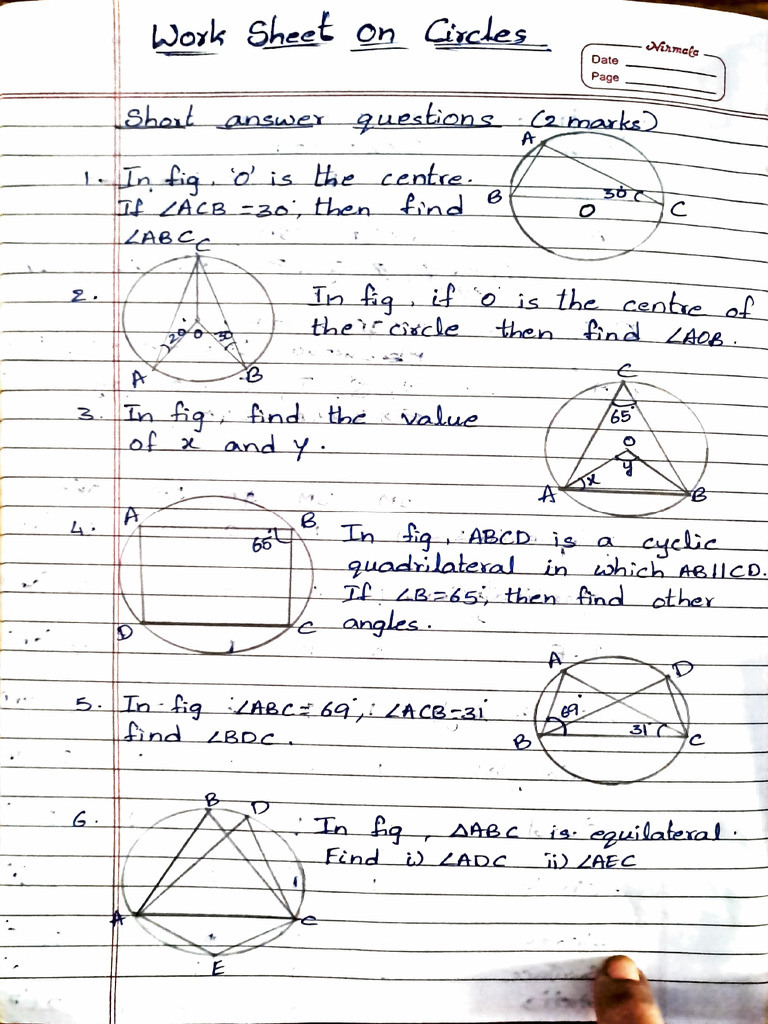 Work Sheet on Circles
Nirmala
Date
Page
Short answer questions (2 marks)
1. In fig, 'O' is the centre.
If ∠ACB =30°, then find
∠ABC
A
B
30°
C
O
2. In fig, if 'O' is the centre of
the circle then find ∠AOB.
C
20° O 30°
A
B
3. In fig, find the value
of x and y.
C
65°
O
y
x
A
B
4. In fig, ABCD is a cyclic
quadrilateral in which AB||CD.
If ∠B=65°, then find other
angles.
A
B
65°
D
C
5. In fig ∠ABC= 69°, ∠ACB=31°
find ∠BDC.
A
D
69°
31°
B
C
6. In fig, △ABC is equilateral.
Find i) ∠ADC ii) ∠AEC
B
D
A
C
E